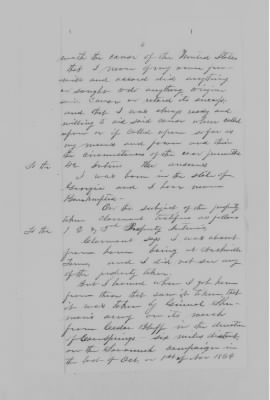 4
with the cause of the United States
that I never of my own free
will and accord did anything
or sought to do anything
cause or retard its success
and that I was always ready and
willing to aid said cause when called
upon or if called upon so far as
my means and power and
the circumstances of the case permitted
To the Int. the answers
I was born in the State of
Georgia and I
Bankruptcy
On the subject of the property
taken Claimant testifies as follows
To the 1 2 & 3rd Property Interior
Claimant says I was absent
from home being at
Tenn, and I did not see any
of the property taken
But I learned when I got home
from those that saw it taken that
it was taken by General Sher
man's army on its march
from Cedar Bluff in the direction
of Cave Springs six miles distant
on the Savannah campaign in
the last of Oct or 1st of Nov 1864